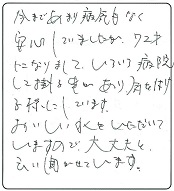 今まであまり病気もなく
安心していましたが、72才
になりまして、いろいろ病院
して掛る事があり、気をはげ
ます様にしています。
おいしい水をいただいて
いますので大丈夫と、
言い聞かせています。